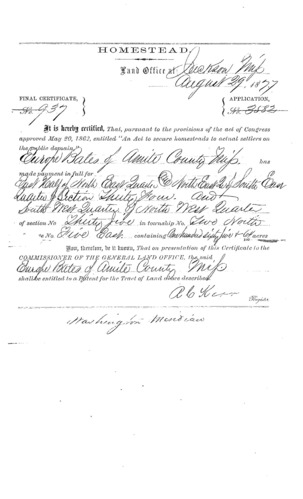 HOMESTEAD.
Land Office at Jackson Miss
August 29, 1877
FINAL CERTIFICATE,
APPLICATION,
No 937
No 3682
It is hereby certified, That, pursuant to the provisions of the act of Congress
approved May 20, 1862, entitled "An Act to secure homesteads to actual settlers on
the public domain,"
Bales of Amite County Miss. has
made payment in full for
East Half of North East Quarter & North East Qr of South East
Quarter of Section Thirty Four. And
South West Quarter of North West Quarter
of section No Thirty five in township No Two North
No. Five East containing One hundred sixty four acres
Now, therefore, be it known, That on presentation of this Certificate to the
COMMISSIONER OF THE GENERAL LAND OFFICE, the said
Bales of Amite County Miss
shall be entitled to a Patent for the Tract of Land above described.
Register
Washington Meridian